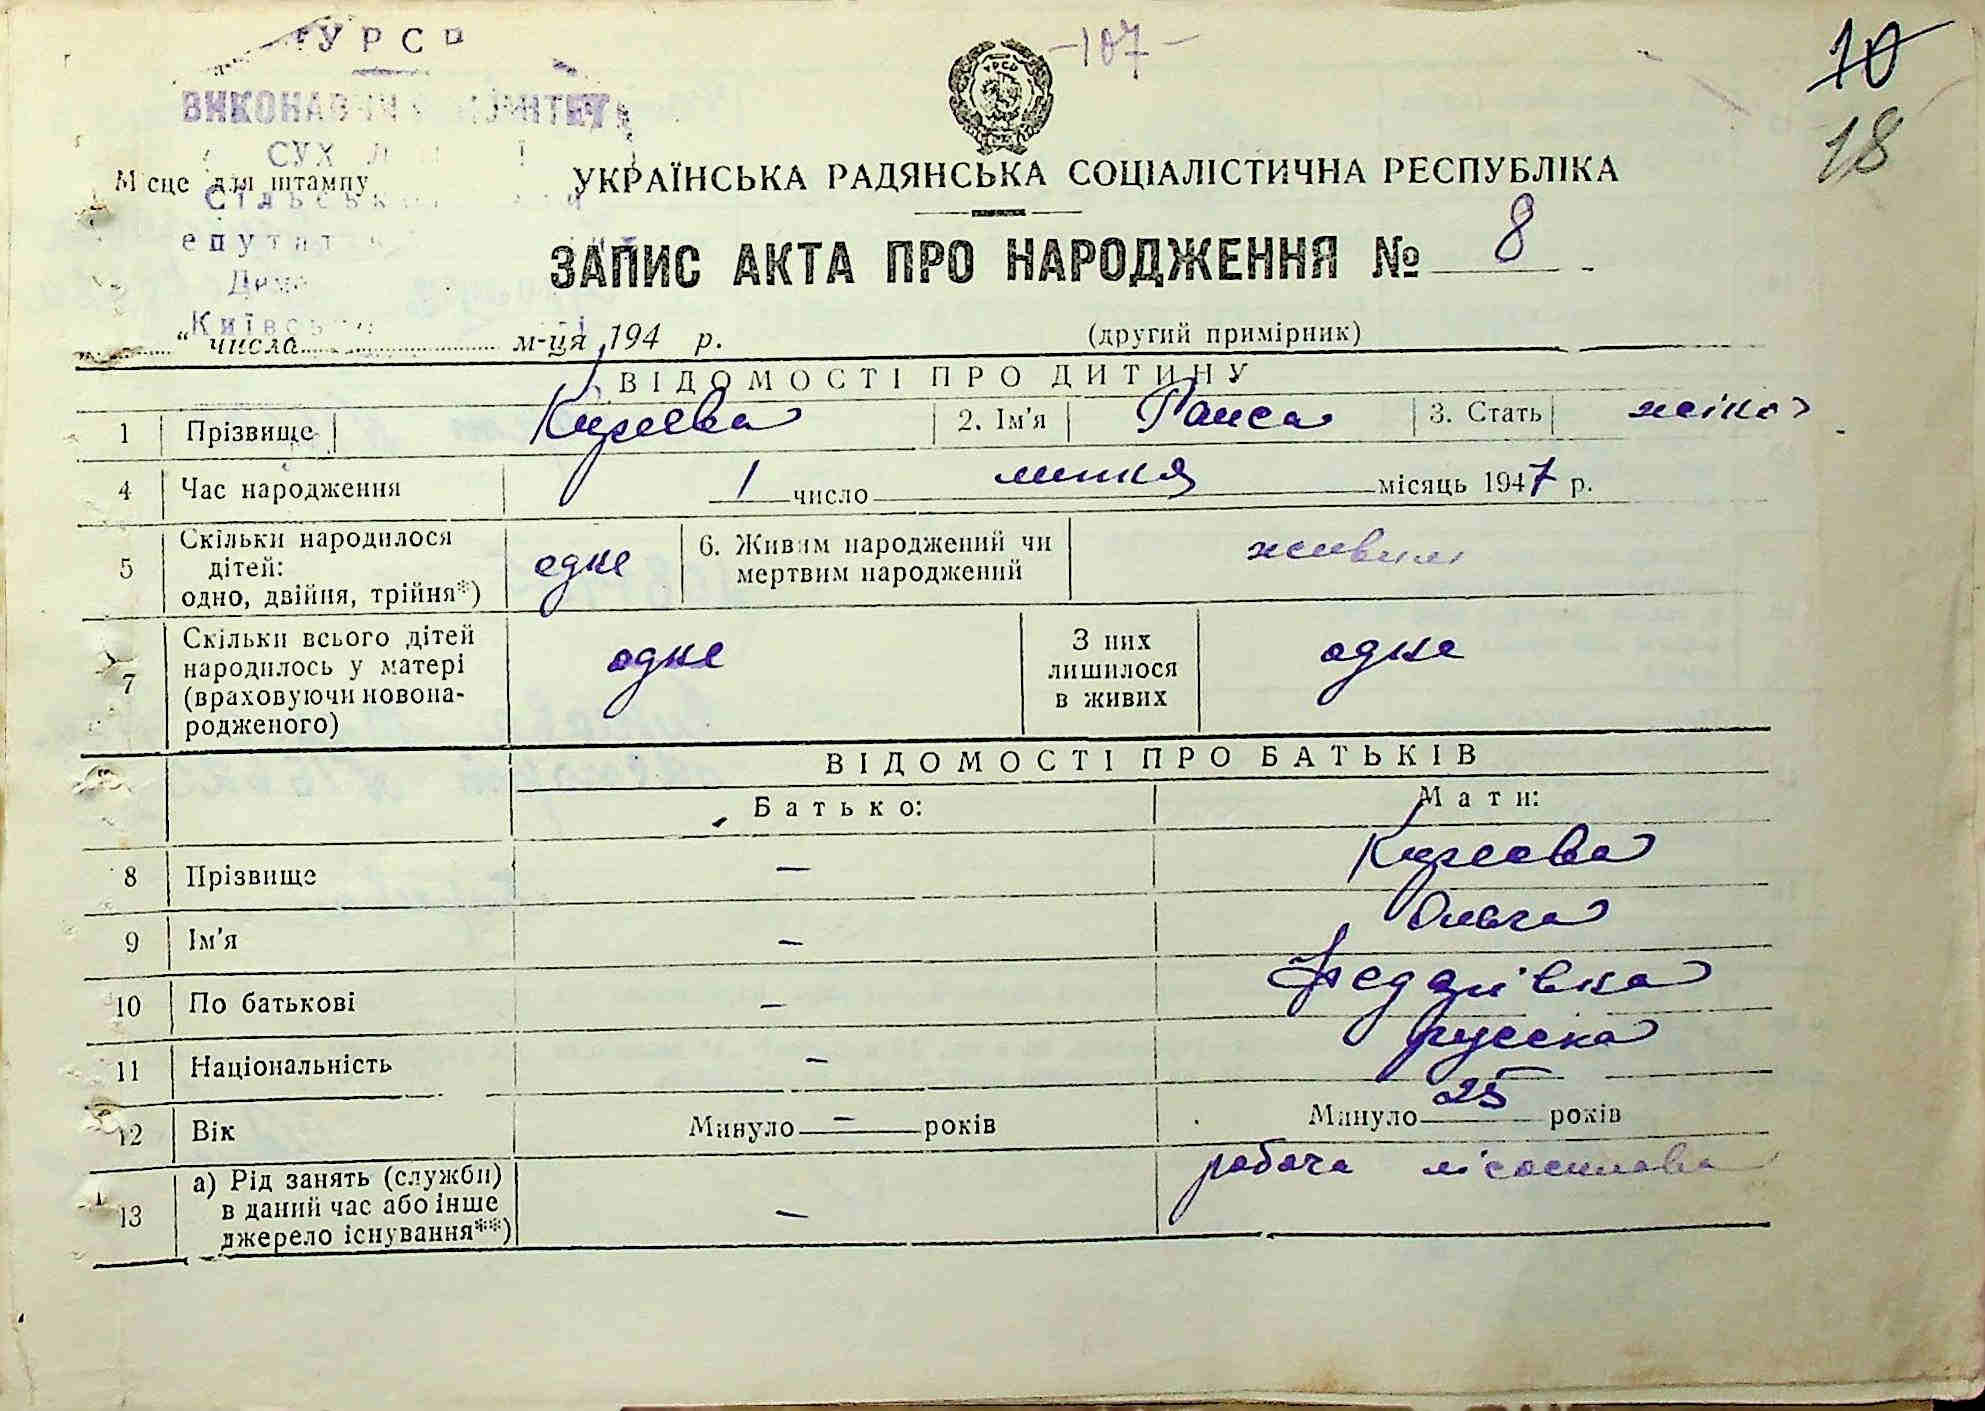 УРСР
-107-
10
18
ВИКОНАВЧИЙ КОМІТЕТ
УРСР
Місце для штампу
УКРАЇНСЬКА РАДЯНСЬКА СОЦІАЛІСТИЧНА РЕСПУБЛІКА
ЗАПИС АКТА ПРО НАРОДЖЕННЯ № 8
" числа м-ця 194 р. (другий примірник)
ВІДОМОСТІ ПРО ДИТИНУ
1 Прізвище Кирєєва 2. Ім'я Раиса 3. Стать жіноч
4 Час народження 1 число липня місяць 1947 р.
5 Скільки народилося дітей: одно, двійня, трійня*) одне 6. Живим народжений чи мертвим народжений живим
7 Скільки всього дітей народилось у матері (враховуючи новонародженого) одне З них лишилося в живих одне
ВІДОМОСТІ ПРО БАТЬКІВ
Батько: Мати:
8 Прізвище — Кирєєва
9 Ім'я — Ольга
10 По батькові — Федорівна
11 Національність — русска
12 Вік Минуло — років Минуло 25 років
13 а) Рід занять (служби) в даний час або інше джерело існування**) — робоча